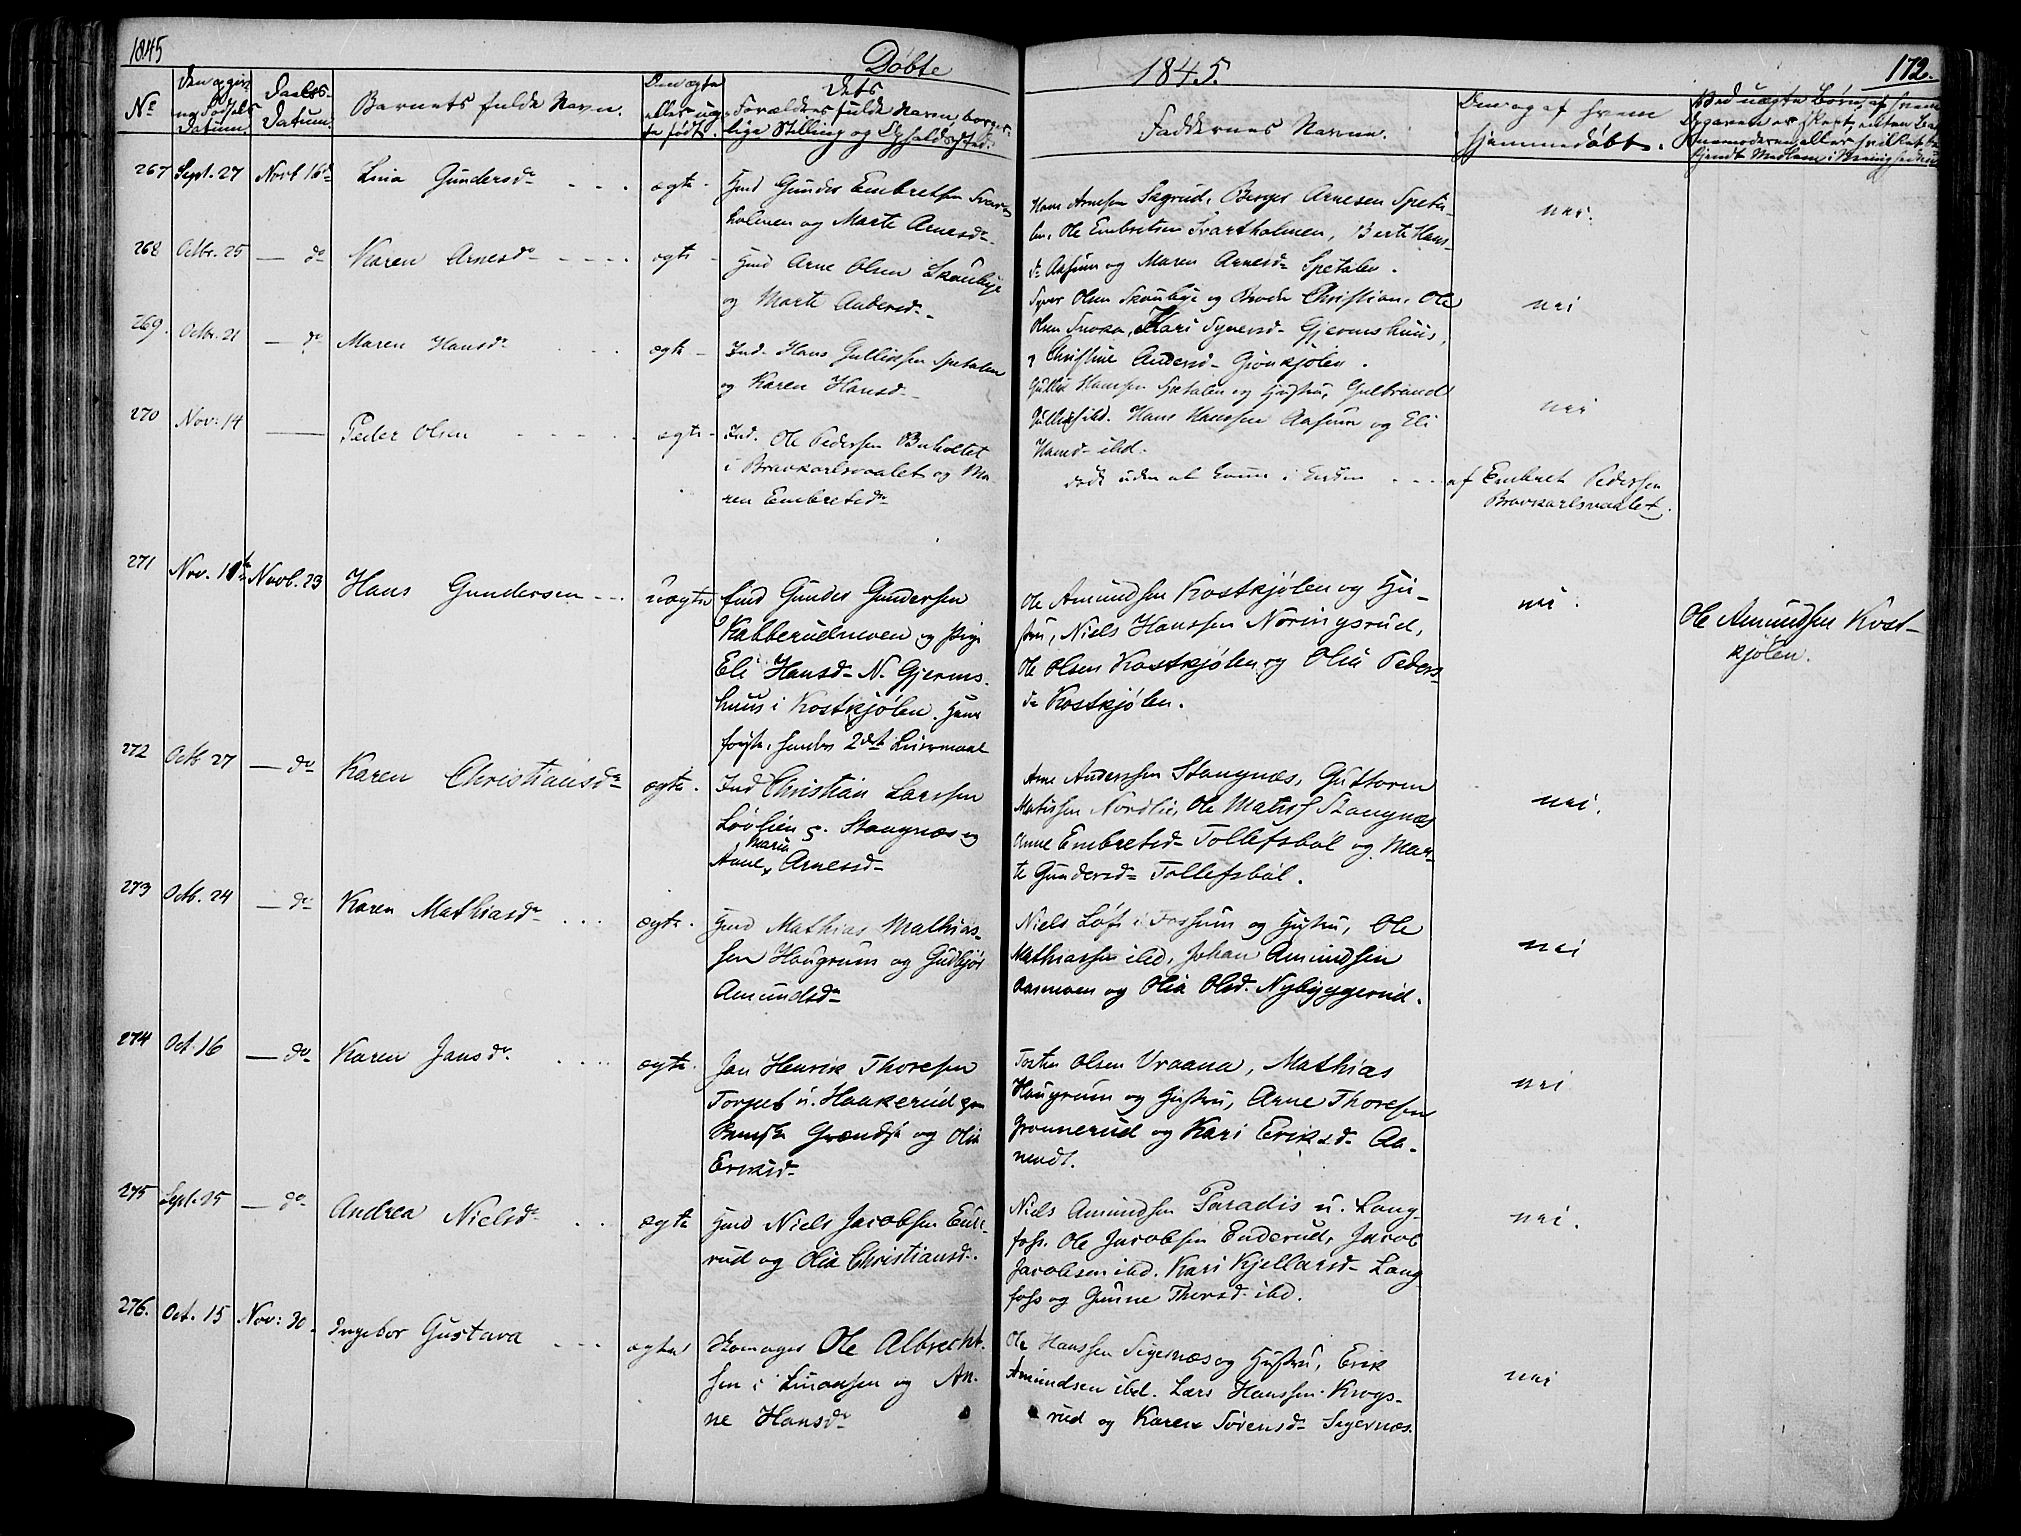 1845
Døbte
1845.
172.
No
Daabs-
Datum.
Barnets fulde Navn.
Forældres fulde Navn, borger-
lige Stilling og Opholdssted.
Faddernes Navne.
Om og af hvem
hjemmedøbt.
267 Sept. 27 Novb 16de Lina Gundersdr - - - ægte - Hmd Gunder Embretsen Svart-
holmen og Marte Arnesdr
Hans Arnesen Sagrud, Berger Arnesen Speta-
len, Ole Embretsen Svartholmen, Berte Hans-
dr Aasum og Maren Arnesdr Spetalen.
nei.
268 Octbr. 25 — do Karen Arnesdr - - - - ægte - Hmd Arne Olsen Skaubye
og Marte Andersdr
Syver Olsen Skaubye og Broder Christian, Ole
Olsen Snoka, Kari Syversdr Gjermshuus,
og Christine Andersdr Grønkjølen.
nei
269. Octbr. 21 — do Maren Hansdr ægte - Ind. Hans Gullissen Spetalen
og Karen Hansdr
Gullik Hanssen Spetalen og Hustru, Gulbrand
ibd. Hans Hanssen Aasum og Eli
Hansdr ibd.
nei
270 Nov: 14 — Peder Olsen - - - - - ægte - Ind. Ole Pedersen Buholtet
i Bravkarlsvaalet og Ma-
ren Embretsdr
døde uden at komme i Kirken - - - af Embret Pedersen
Bravkarlsvaalet.
271 Nov. Novb. 23 Hans Gundersen - - - uægte Gunder Gundersen
Kabberudmoen og Pige
Eli Hansdr N. Gjerms-
huus i Kostkjølen. Hans
første, hendes 2det Leiermaal
Ole Amundsen Kostkjølen og Hu-
stru, Niels Hanssen Noringsrud,
Ole Olsen Kostkjølen og Olia Peders-
dr Kostkjølen.
nei.
Ole Amundsen Kost-
kjølen.
272 Octb 27 — do Karen Christiansdr ægte. Ind Christian Larssen
Løvlien Stangnæs og
Maria
Anne Arnesdr
Arne Anderssen Stangnæs, Guttorm
Matissen Nordlie, Ole Matis. Stangnæs
Anne Embretsdr Tollefsbøl og Mar-
te Gundersdr Tollefsbøl.
nei.
273 Octb. 24 — do Karen Mathiasdr . . . ægte. Hmd Mathias Mathias-
sen Haugrum og Gudbjør
Amundsdr
Niels Løft i Fossum og Hustru, Ole
Mathiassen ibd, Johan Amundsen
Aasmoen og Olia Olsd. Nybyggerud.
nei
274 Oct. 16 — do Karen Jansdr. . . . . ægte. Jan Henrik Thoresen
Torpet u. Haakerud
Grændse og Olia
Eriksdr
Olsen Vraana, Mathias
Haugrum og Hustru, Arne Thoresen
Grønnerud og Kari Eriksdr Aa-
modt.
nei
275 Sept. 25 — do Andrea Nielsdr . . ægte Hmd Niels Jacobsen Ende-
rud og Olia Christiansdr.
Niels Amundsen Paradis u. Lang-
foss. Ole Jacobsen Enderud, Jacob
Jacobsen ibd. Kari Kjellarsdr Lang-
foss og Gunne Thorsdr ibd.
nei.
276. Oct. 15 Nov: 30. Ingebor Gustava - - - ægte Skomager Ole Albrecht-
sen i Linaasen og An-
ne Hansdr
Ole Hanssen Sigernæs og Hustru, Erik
Amundsen ibd. Lars Hanssen Krogs-
rud og Karen Sørensdr Sigernæs.
nei